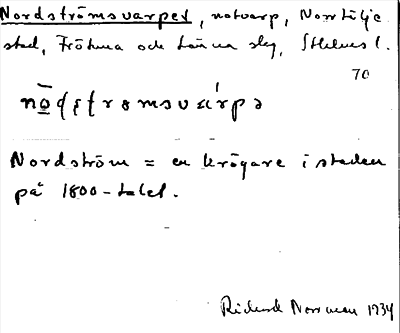 Nordströmsvarpet, notvarp, Norrtälje
stad, Frötuna och Länna slg, Sthlms l.
70
Nordström = en krögare i staden
på 1800-talet.
Rickard Norrman 1934